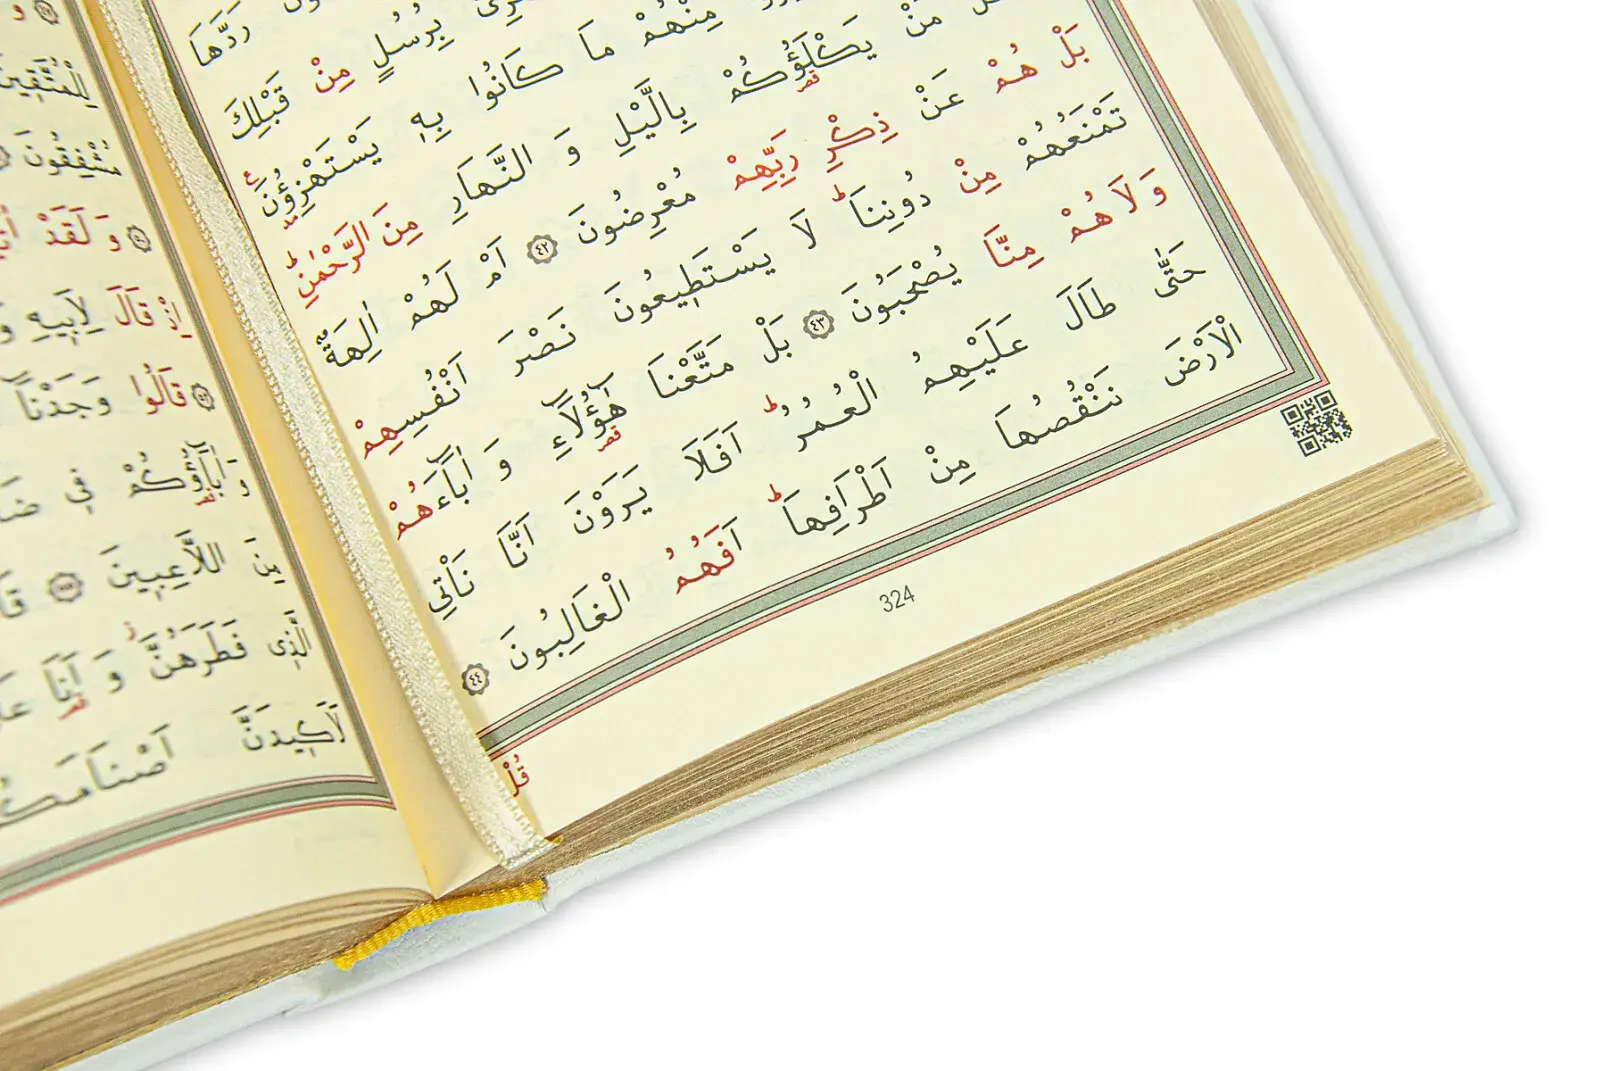 رَدَّهَا
بِرُسُلٍ مِنْ قَبْلِكَ
مِنْهُمْ مَا كَانُوا بِهِ يَسْتَهْزِؤُنَ ع
مَنْ يَكْلَؤُكُمْ بِالَّيْلِ وَ النَّهَارِ مِنَ الرَّحْمٰنِ ط
بَلْ هُمْ عَنْ ذِكْرِ رَبِّهِمْ مُعْرِضُونَ ٤٢ اَمْ لَهُمْ اٰلِهَةٌ
تَمْنَعُهُمْ مِنْ دُونِنَا ط لَا يَسْتَطِيعُونَ نَصْرَ اَنْفُسِهِمْ
وَ لَا هُمْ مِنَّا يُصْحَبُونَ ٤٣ بَلْ مَتَّعْنَا هٰٓؤُلَٓاءِ وَ اٰبَٓاءَهُمْ
حَتّٰى طَالَ عَلَيْهِمُ الْعُمُرُ ط اَفَلَا يَرَوْنَ اَنَّا نَاْتِي
الْاَرْضَ نَنْقُصُهَا مِنْ اَطْرَافِهَا ط اَفَهُمُ الْغَالِبُونَ ٤٤
324
قُلْ
لِلْمُتَّقِينَ
مُشْفِقُونَ
وَ لَقَدْ
اِذْ قَالَ لِاَبِيهِ وَ
قَالُوا وَجَدْنَٓا
وَ اٰبَٓاؤُكُمْ فِي
مِنَ اللَّاعِبِينَ
الَّذِي فَطَرَهُنَّ وَ اَنَا
لَاَكِيدَنَّ اَصْنَامَكُ